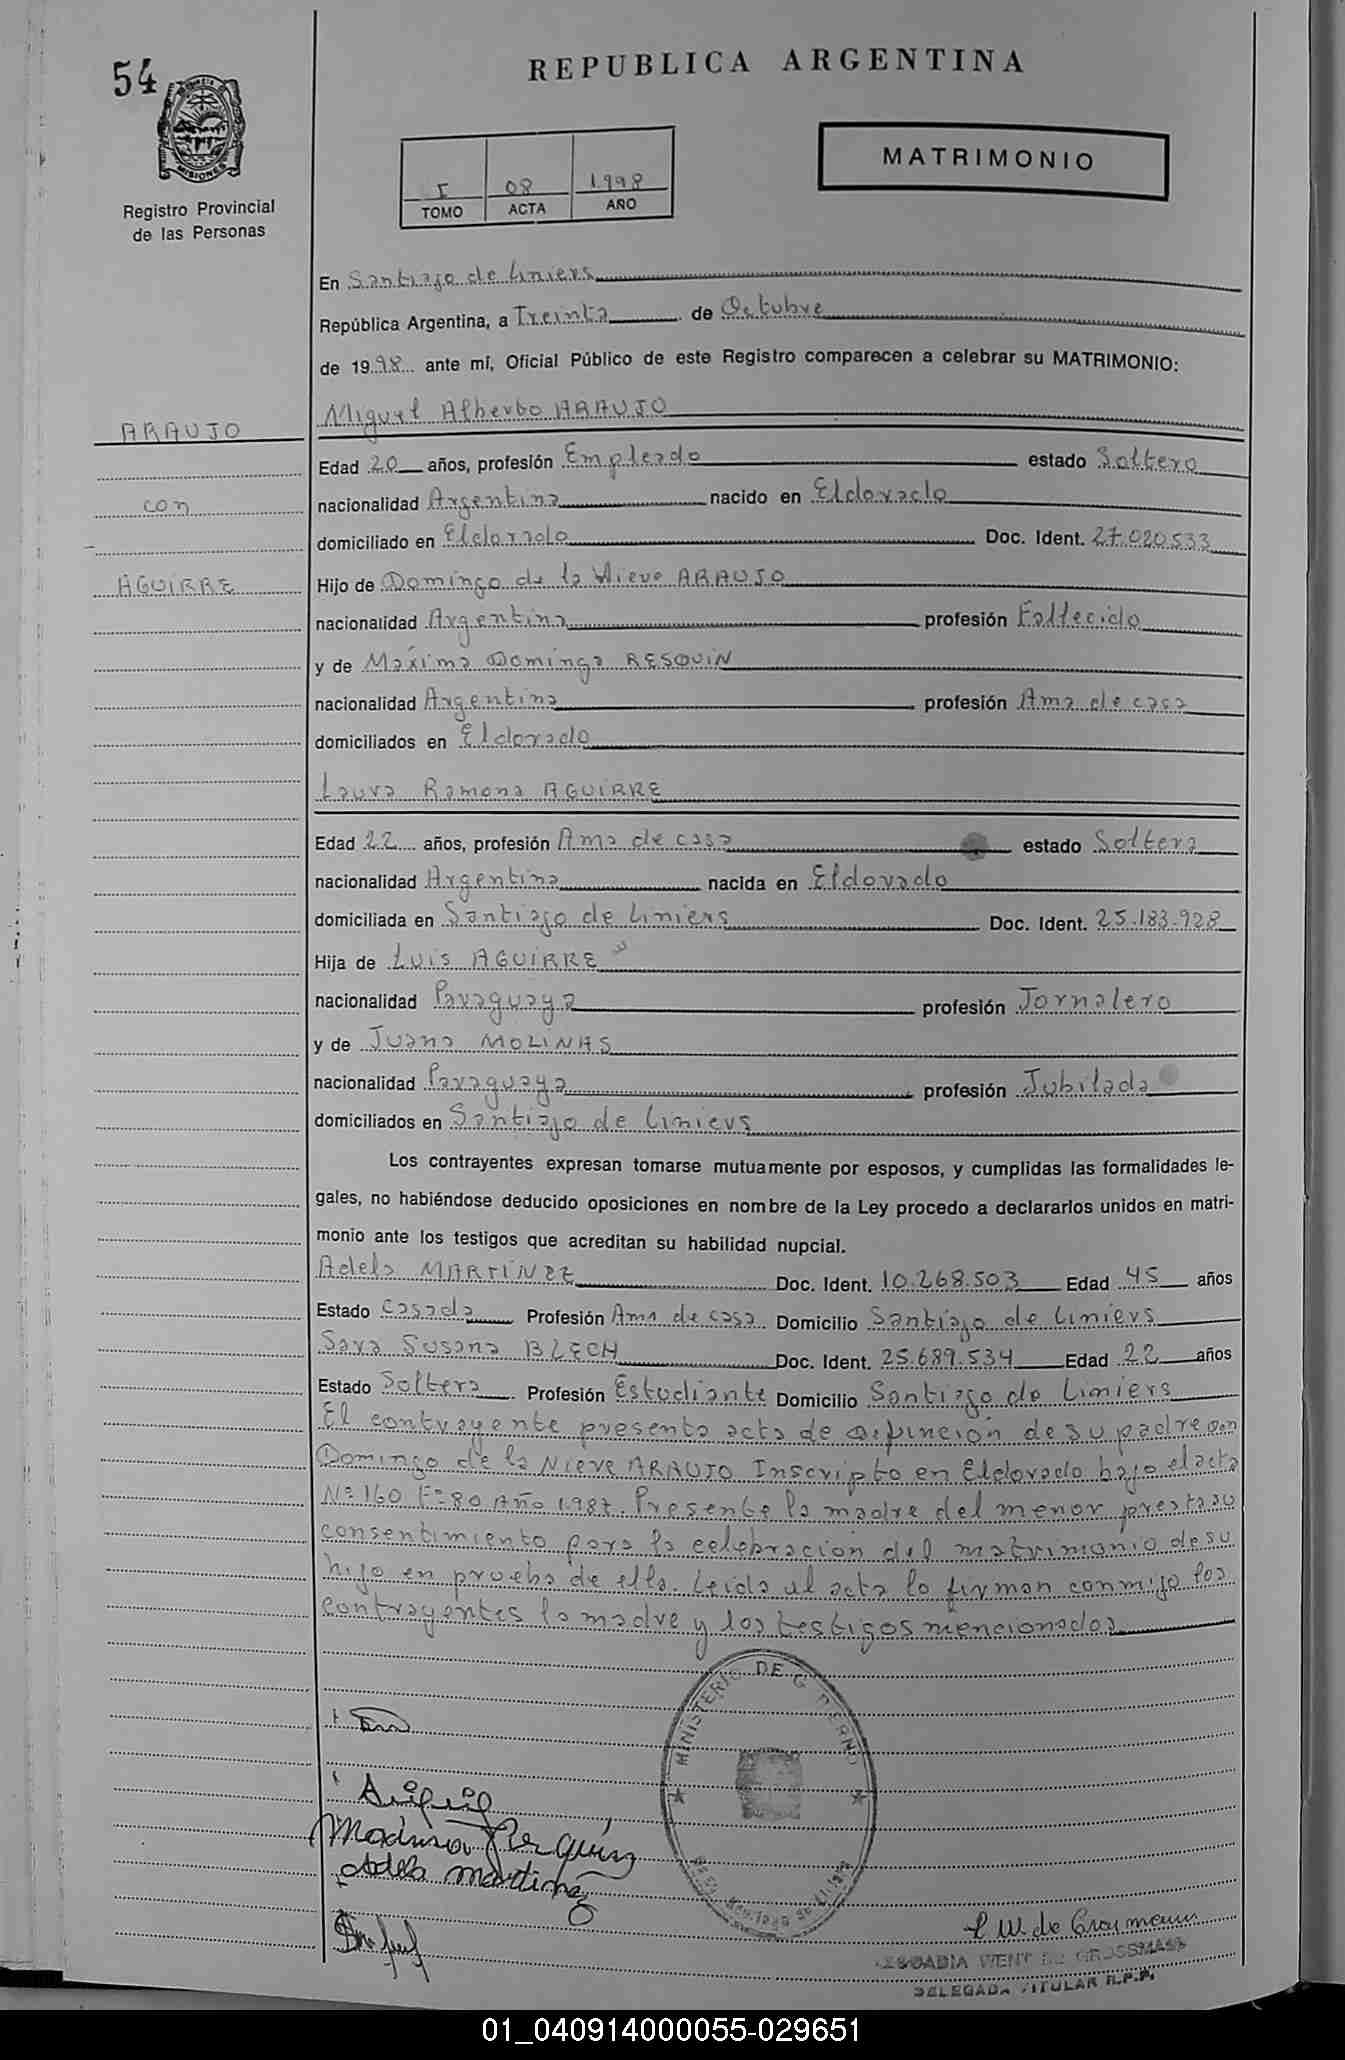 54
REPUBLICA ARGENTINA
MISIONES
Registro Provincial
de las Personas
I 08 1.998
TOMO ACTA AÑO
MATRIMONIO
En Santiago de Liniers
República Argentina, a Treinta de Octubre
de 1998 ante mí, Oficial Público de este Registro comparecen a celebrar su MATRIMONIO:
Miguel Alberto ARAUJO
ARAUJO
Edad 20 años, profesión Empleado estado Soltero
con
nacionalidad Argentina nacido en Eldorado
domiciliado en Eldorado Doc. Ident. 27.020.533
AGUIRRE
Hijo de Domingo de la Nieve ARAUJO
nacionalidad Argentina profesión Fallecido
y de Maxima Dominga RESQUIN
nacionalidad Argentina profesión Ama de casa
domiciliados en Eldorado
Laura Ramona AGUIRRE
Edad 22 años, profesión Ama de casa estado Soltera
nacionalidad Argentina nacida en Eldorado
domiciliada en Santiago de Liniers Doc. Ident. 25.183.928
Hija de Luis AGUIRRE
nacionalidad Paraguaya profesión Jornalero
y de Juana MOLINAS
nacionalidad Paraguaya profesión Jubilada
domiciliados en Santiago de Liniers
Los contrayentes expresan tomarse mutuamente por esposos, y cumplidas las formalidades le-
gales, no habiéndose deducido oposiciones en nombre de la Ley procedo a declararlos unidos en matri-
monio ante los testigos que acreditan su habilidad nupcial.
Adela MARTÍNEZ Doc. Ident. 10.268.503 Edad 45 años
Estado Casada Profesión Ama de casa Domicilio Santiago de Liniers
Sara Susana BLECH Doc. Ident. 25.689.534 Edad 22 años
Estado Soltera Profesión Estudiante Domicilio Santiago de Liniers
El contrayente presenta acta de defuncion de su padre Don
Domingo de la Nieve ARAUJO Inscripto en Eldorado bajo el acta
Nº 160 Fº 80 Año 1.987. Presente la madre del menor presta su
consentimiento para la celebracion del matrimonio de su
hijo en prueba de ello. Leida el acta la firman conmigo los
contrayentes la madre y los testigos mencionados
MINISTERIO DE GOBIERNO
Adela Martinez
DELEGADA TITULAR R.P.P.
01_040914000055-029651